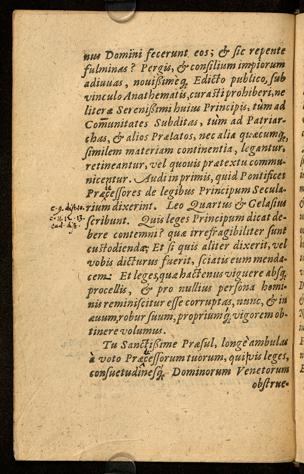 nus Domini fecerunt eos; & sic repente
fulminas? Pergis, & consilium impiorum
adiuuas, nouißimeq́, Edicto publico, sub
vinculo Anathematis, curasti prohiberi, ne
literæ Serenißimi huius Principis, tùm ad
Com̃unitates Subditas, tùm ad Patriar-
chas, & alios Prælatos, nec alia quæcumq́,
similem materiam continentia, legantur,
retineantur, vel quouis prætextu commu-
nicentur. Audi in primis, quid Pontifices
Præcessores de legibus Principum Secula-
rium dixerint. Leo Quartus & Gelasius
scribunt. Quis leges Principum dicat de-
bere contemni? quæ irrefragibiliter sunt
custodiendæ; Et si quis aliter dixerit, vel
vobis dicturus fuerit, sciatis eum menda-
cem. Et leges, quæ hactenus viguere absq́,
procellis, & pro nullius persona homi-
nis reminiscitur esse corruptas, nunc, & in
æuum, robur suum, propriumq́, vigorem ob-
tinere volumus.
Tu Sanctißime Præsul, longè ambulas
à voto Præcessorum tuorum, qui suis leges,
consuetudinesq́, Dominorum Venetorum
obstrue-